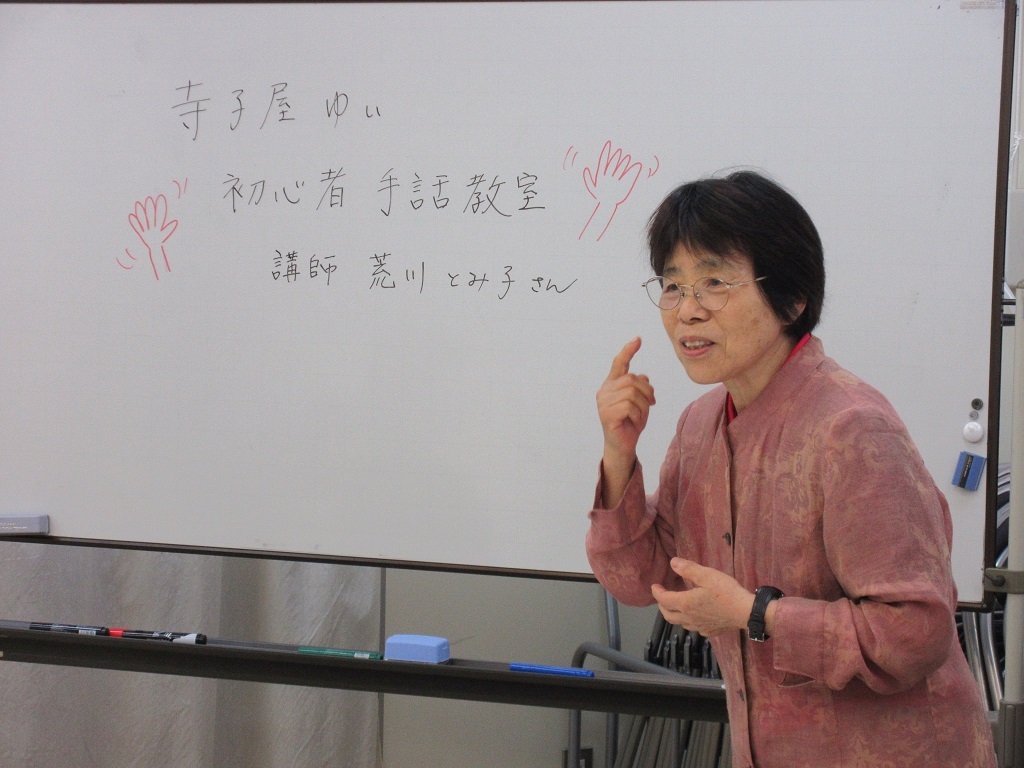 寺子屋 ゆい
初心者 手話教室
講師 荒川 とみ子さん